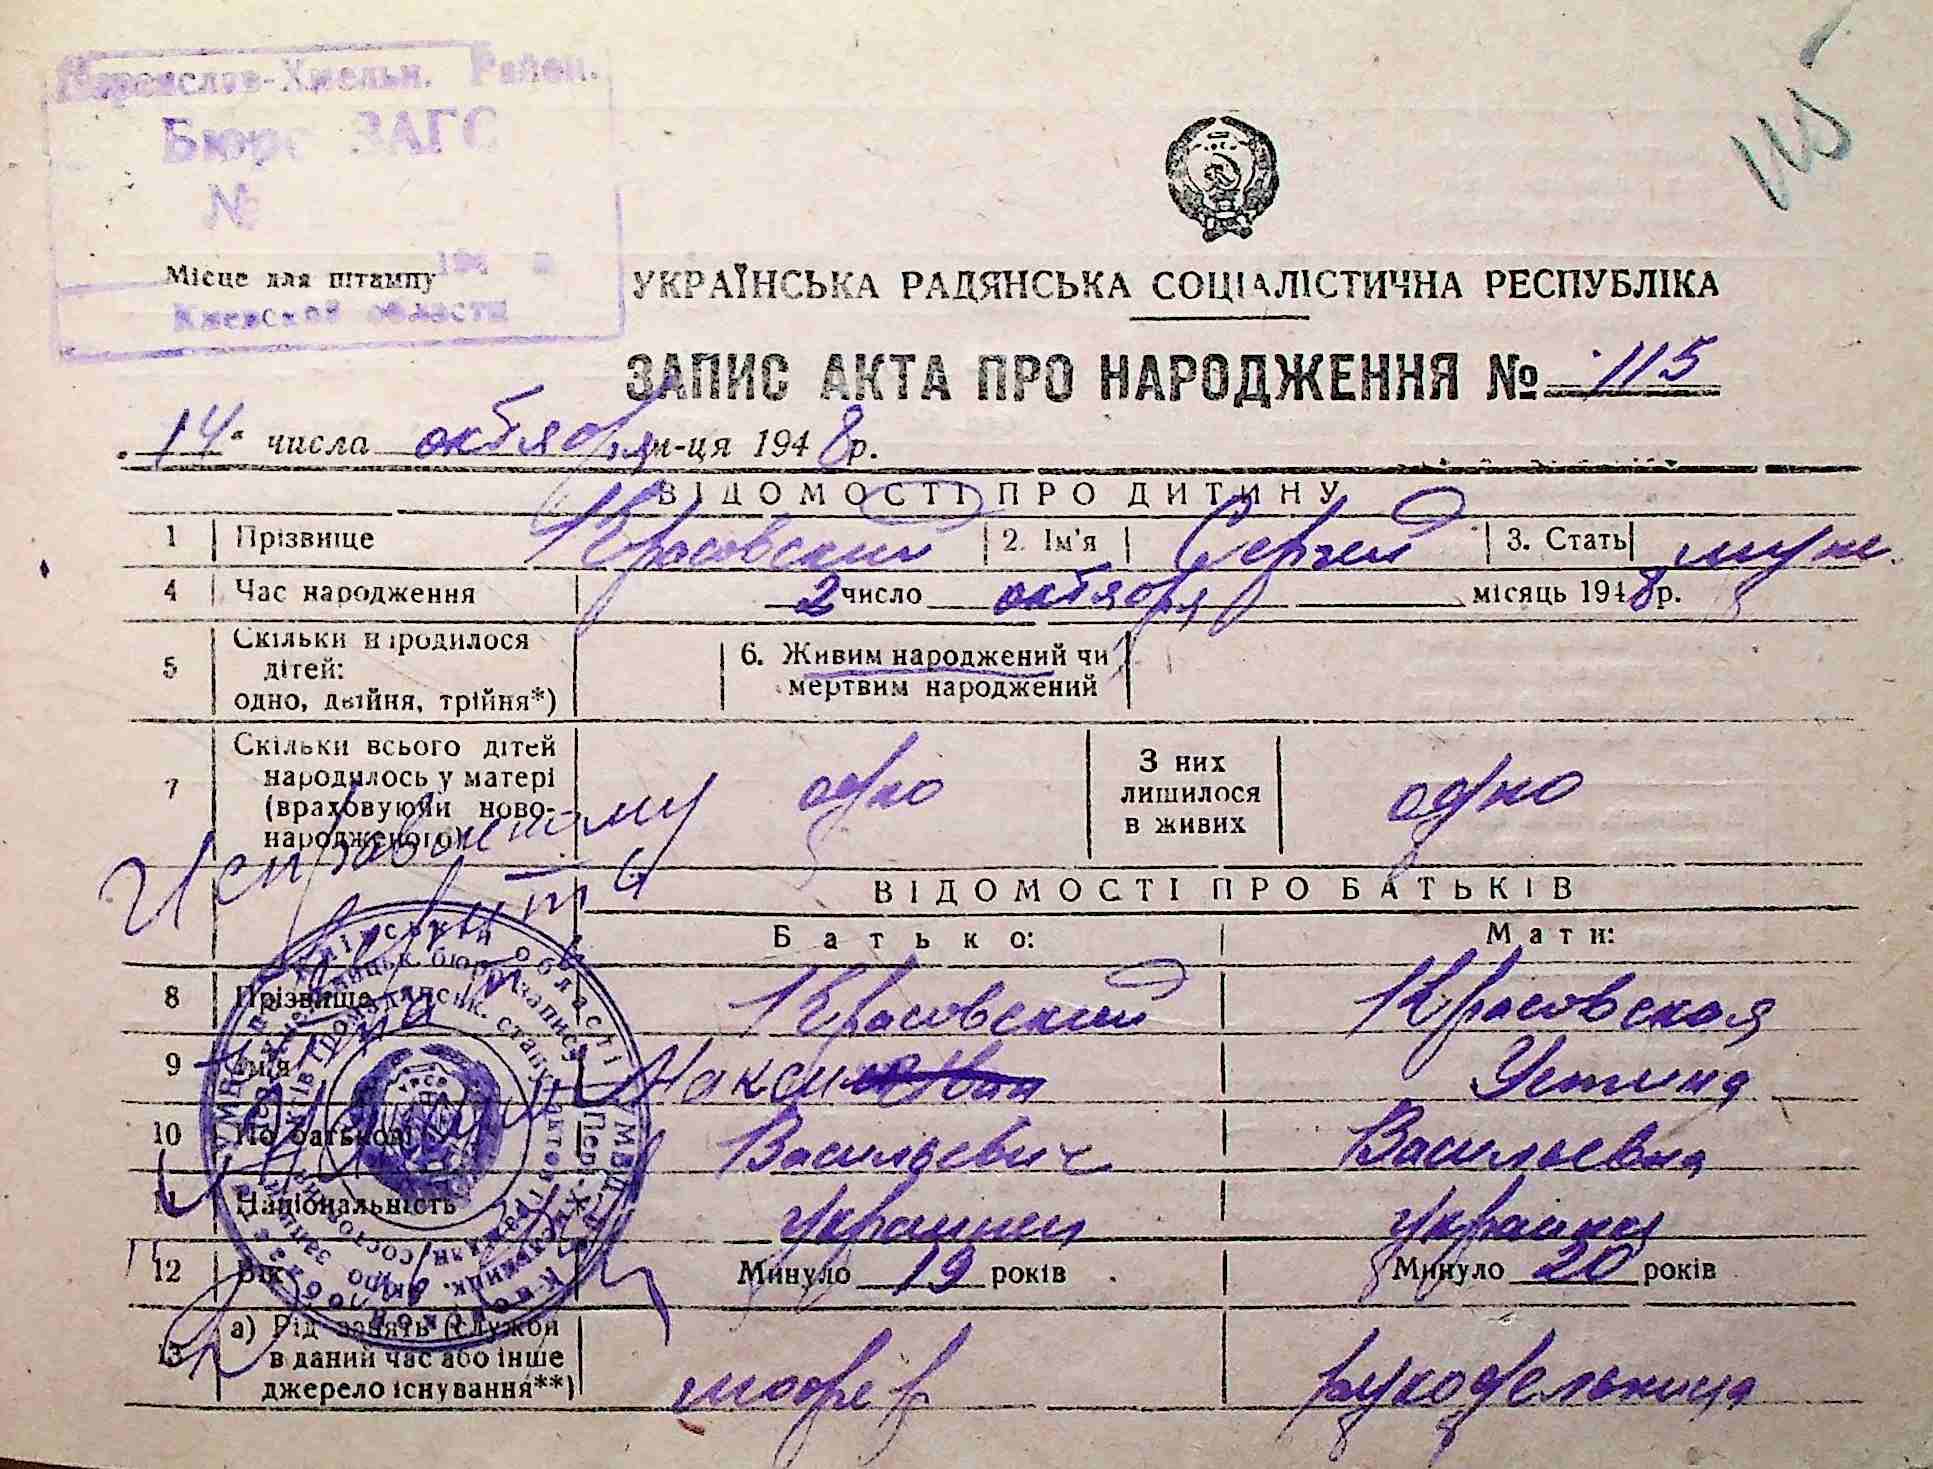 115
Переяслав-Хмельн. Район.
Бюро ЗАГС
№
194 г.
Киевской области
Місце для штампу
УКРАЇНСЬКА РАДЯНСЬКА СОЦІАЛІСТИЧНА РЕСПУБЛІКА
ЗАПИС АКТА ПРО НАРОДЖЕННЯ № 115
14 числа октября м-ця 1948 р.
ВІДОМОСТІ ПРО ДИТИНУ
1 Прізвище Красовский 2. Ім'я Сергей 3. Стать муж.
4 Час народження 2 число октября місяць 1948 р.
5 Скільки народилося дітей: одно, двійня, трійня*)
6. Живим народжений чи мертвим народжений
7 Скільки всього дітей народилось у матері (враховуючи ново-народженого) одно
З них лишилося в живих одно
Исправленому
ВІДОМОСТІ ПРО БАТЬКІВ
Батько: Мати:
8 Прізвище Красовский Красовская
9 Ім'я Максим Иван Устина
10 По батькові Васильевич Васильевна
11 Національність украинец украинка
12 Вік Минуло 19 років Минуло 20 років
13 а) Рід занять (служби в даний час або інше джерело існування**) шофер рукодельница